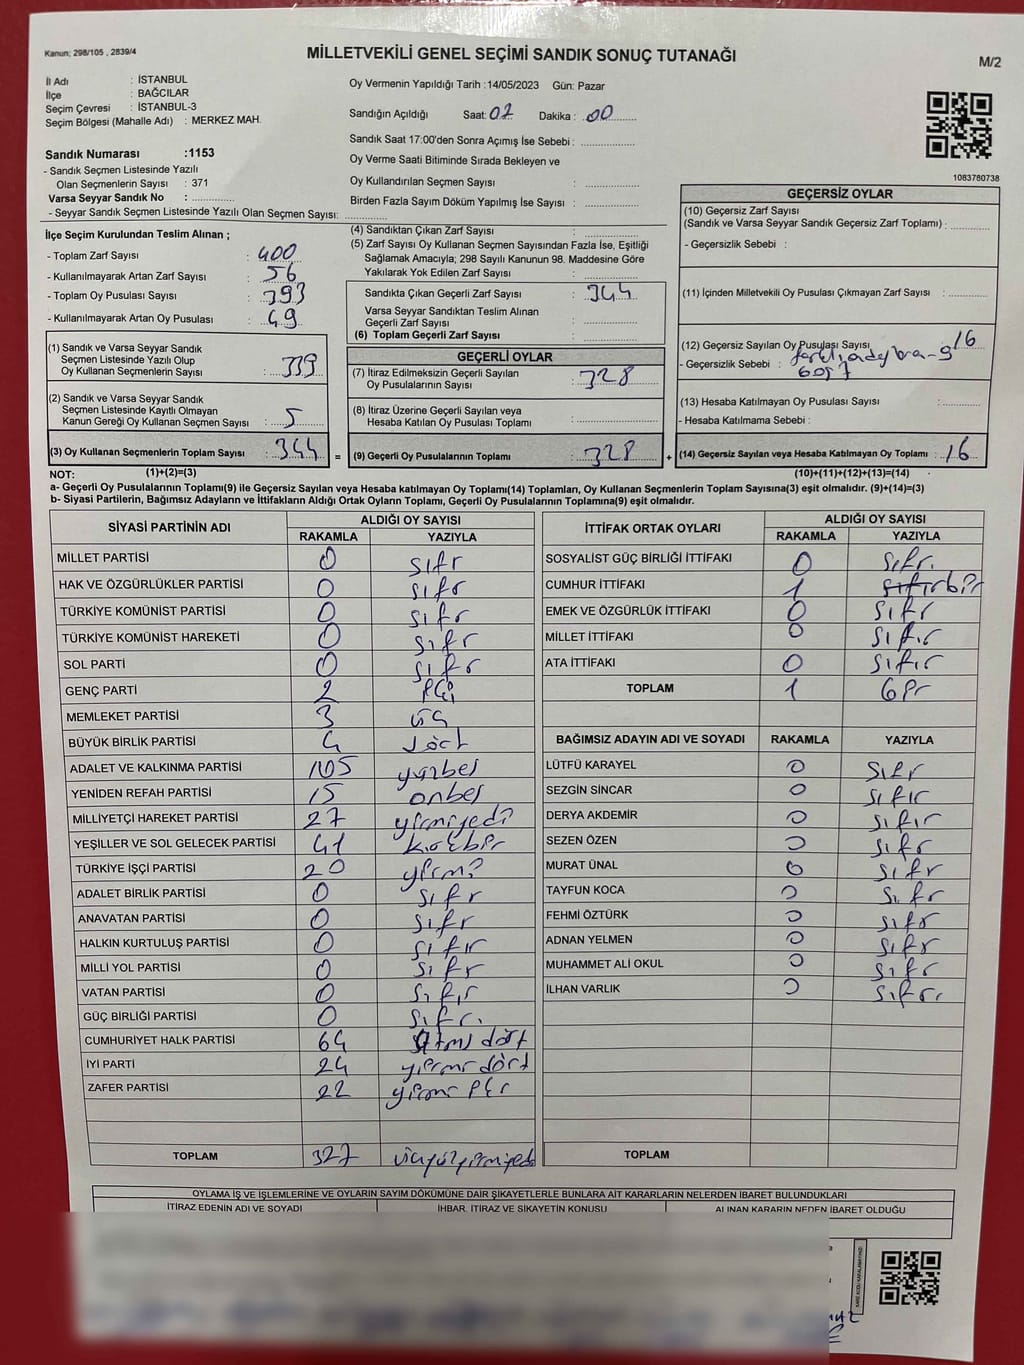 Kanun; 298/105 , 2839/4
MİLLETVEKİLİ GENEL SEÇİMİ SANDIK SONUÇ TUTANAĞI
M/2
İl Adı : İSTANBUL
İlçe : BAĞCILAR
Seçim Çevresi : İSTANBUL-3
Seçim Bölgesi (Mahalle Adı) : MERKEZ MAH.
Oy Vermenin Yapıldığı Tarih :14/05/2023 Gün: Pazar
Sandığın Açıldığı Saat: 02 Dakika : 00
Sandık Saat 17:00'den Sonra Açımış İse Sebebi :
Oy Verme Saati Bitiminde Sırada Bekleyen ve
Oy Kullandırılan Seçmen Sayısı :
Birden Fazla Sayım Döküm Yapılmış İse Sayısı :
1083780738
Sandık Numarası :1153
- Sandık Seçmen Listesinde Yazılı
Olan Seçmenlerin Sayısı : 371
Varsa Seyyar Sandık No :
- Seyyar Sandık Seçmen Listesinde Yazılı Olan Seçmen Sayısı:
İlçe Seçim Kurulundan Teslim Alınan ;
- Toplam Zarf Sayısı : 400
- Kullanılmayarak Artan Zarf Sayısı : 56
- Toplam Oy Pusulası Sayısı : 393
- Kullanılmayarak Artan Oy Pusulası : 49
(1) Sandık ve Varsa Seyyar Sandık
Seçmen Listesinde Yazılı Olup
Oy Kullanan Seçmenlerin Sayısı : 339
(2) Sandık ve Varsa Seyyar Sandık
Seçmen Listesinde Kayıtlı Olmayan
Kanun Gereği Oy Kullanan Seçmen Sayısı : 5
(3) Oy Kullanan Seçmenlerin Toplam Sayısı : 344 =
(4) Sandıktan Çıkan Zarf Sayısı :
(5) Zarf Sayısı Oy Kullanan Seçmen Sayısından Fazla İse, Eşitliği
Sağlamak Amacıyla; 298 Sayılı Kanunun 98. Maddesine Göre
Yakılarak Yok Edilen Zarf Sayısı :
Sandıkta Çıkan Geçerli Zarf Sayısı : 344
Varsa Seyyar Sandıktan Teslim Alınan
Geçerli Zarf Sayısı :
(6) Toplam Geçerli Zarf Sayısı :
GEÇERLİ OYLAR
(7) İtiraz Edilmeksizin Geçerli Sayılan
Oy Pusulalarının Sayısı : 328
(8) İtiraz Üzerine Geçerli Sayılan veya
Hesaba Katılan Oy Pusulası Toplamı :
(9) Geçerli Oy Pusulalarının Toplamı : 328 +
GEÇERSİZ OYLAR
(10) Geçersiz Zarf Sayısı
(Sandık ve Varsa Seyyar Sandık Geçersiz Zarf Toplamı) :
- Geçersizlik Sebebi :
(11) İçinden Milletvekili Oy Pusulası Çıkmayan Zarf Sayısı :
(12) Geçersiz Sayılan Oy Pusulası Sayısı : 16
- Geçersizlik Sebebi :
(13) Hesaba Katılmayan Oy Pusulası Sayısı :
- Hesaba Katılmama Sebebi :
(14) Geçersiz Sayılan veya Hesaba Katılmayan Oy Toplamı : 16
NOT: (1)+(2)=(3) (10)+(11)+(12)+(13)=(14)
a- Geçerli Oy Pusulalarının Toplamı(9) ile Geçersiz Sayılan veya Hesaba katılmayan Oy Toplamı(14) Toplamları, Oy Kullanan Seçmenlerin Toplam Sayısına(3) eşit olmalıdır. (9)+(14)=(3)
b- Siyasi Partilerin, Bağımsız Adayların ve İttifakların Aldığı Ortak Oyların Toplamı, Geçerli Oy Pusulalarının Toplamına(9) eşit olmalıdır.
SİYASİ PARTİNİN ADI ALDIĞI OY SAYISI
RAKAMLA YAZIYLA
MİLLET PARTİSİ 0 sıfr
HAK VE ÖZGÜRLÜKLER PARTİSİ 0 sıfr
TÜRKİYE KOMÜNİST PARTİSİ 0 sıfr
TÜRKİYE KOMÜNİST HAREKETİ 0 sıfr
SOL PARTİ 0 sıfr
GENÇ PARTİ 2 iki
MEMLEKET PARTİSİ 3 üç
BÜYÜK BİRLİK PARTİSİ 4 dört
ADALET VE KALKINMA PARTİSİ 105 yüzbeş
YENİDEN REFAH PARTİSİ 15 onbeş
MİLLİYETÇİ HAREKET PARTİSİ 27 yirmiyedi
YEŞİLLER VE SOL GELECEK PARTİSİ 41 kırkbir
TÜRKİYE İŞÇİ PARTİSİ 20 yirmi
ADALET BİRLİK PARTİSİ 0 sıfr
ANAVATAN PARTİSİ 0 sıfr
HALKIN KURTULUŞ PARTİSİ 0 sıfır
MİLLİ YOL PARTİSİ 0 sıfr
VATAN PARTİSİ 0 sıfır
GÜÇ BİRLİĞİ PARTİSİ 0 sıfr.
CUMHURİYET HALK PARTİSİ 64 altmış dört
İYİ PARTİ 24 yirmi dört
ZAFER PARTİSİ 22 yirmi iki
TOPLAM 327 üçyüzyirmiyedi
İTTİFAK ORTAK OYLARI ALDIĞI OY SAYISI
RAKAMLA YAZIYLA
SOSYALİST GÜÇ BİRLİĞİ İTTİFAKI 0 sıfr.
CUMHUR İTTİFAKI 1 sıfır bir
EMEK VE ÖZGÜRLÜK İTTİFAKI 0 sıfr
MİLLET İTTİFAKI 0 sıfır
ATA İTTİFAKI 0 sıfır
TOPLAM 1 bir
BAĞIMSIZ ADAYIN ADI VE SOYADI RAKAMLA YAZIYLA
LÜTFÜ KARAYEL 0 sıfr
SEZGİN SİNCAR 0 sıfır
DERYA AKDEMİR 0 sıfır
SEZEN ÖZEN 0 sıfr
MURAT ÜNAL 0 sıfr
TAYFUN KOCA 0 sıfr
FEHMİ ÖZTÜRK 0 sıfr
ADNAN YELMEN 0 sıfr
MUHAMMET ALİ OKUL 0 sıfr
İLHAN VARLIK 0 sıfr.
TOPLAM
OYLAMA İŞ VE İŞLEMLERİNE VE OYLARIN SAYIM DÖKÜMÜNE DAİR ŞİKAYETLERLE BUNLARA AİT KARARLARIN NELERDEN İBARET BULUNDUKLARI
İTİRAZ EDENİN ADI VE SOYADI İHBAR, İTİRAZ VE ŞİKAYETİN KONUSU ALINAN KARARIN NEDEN İBARET OLDUĞU